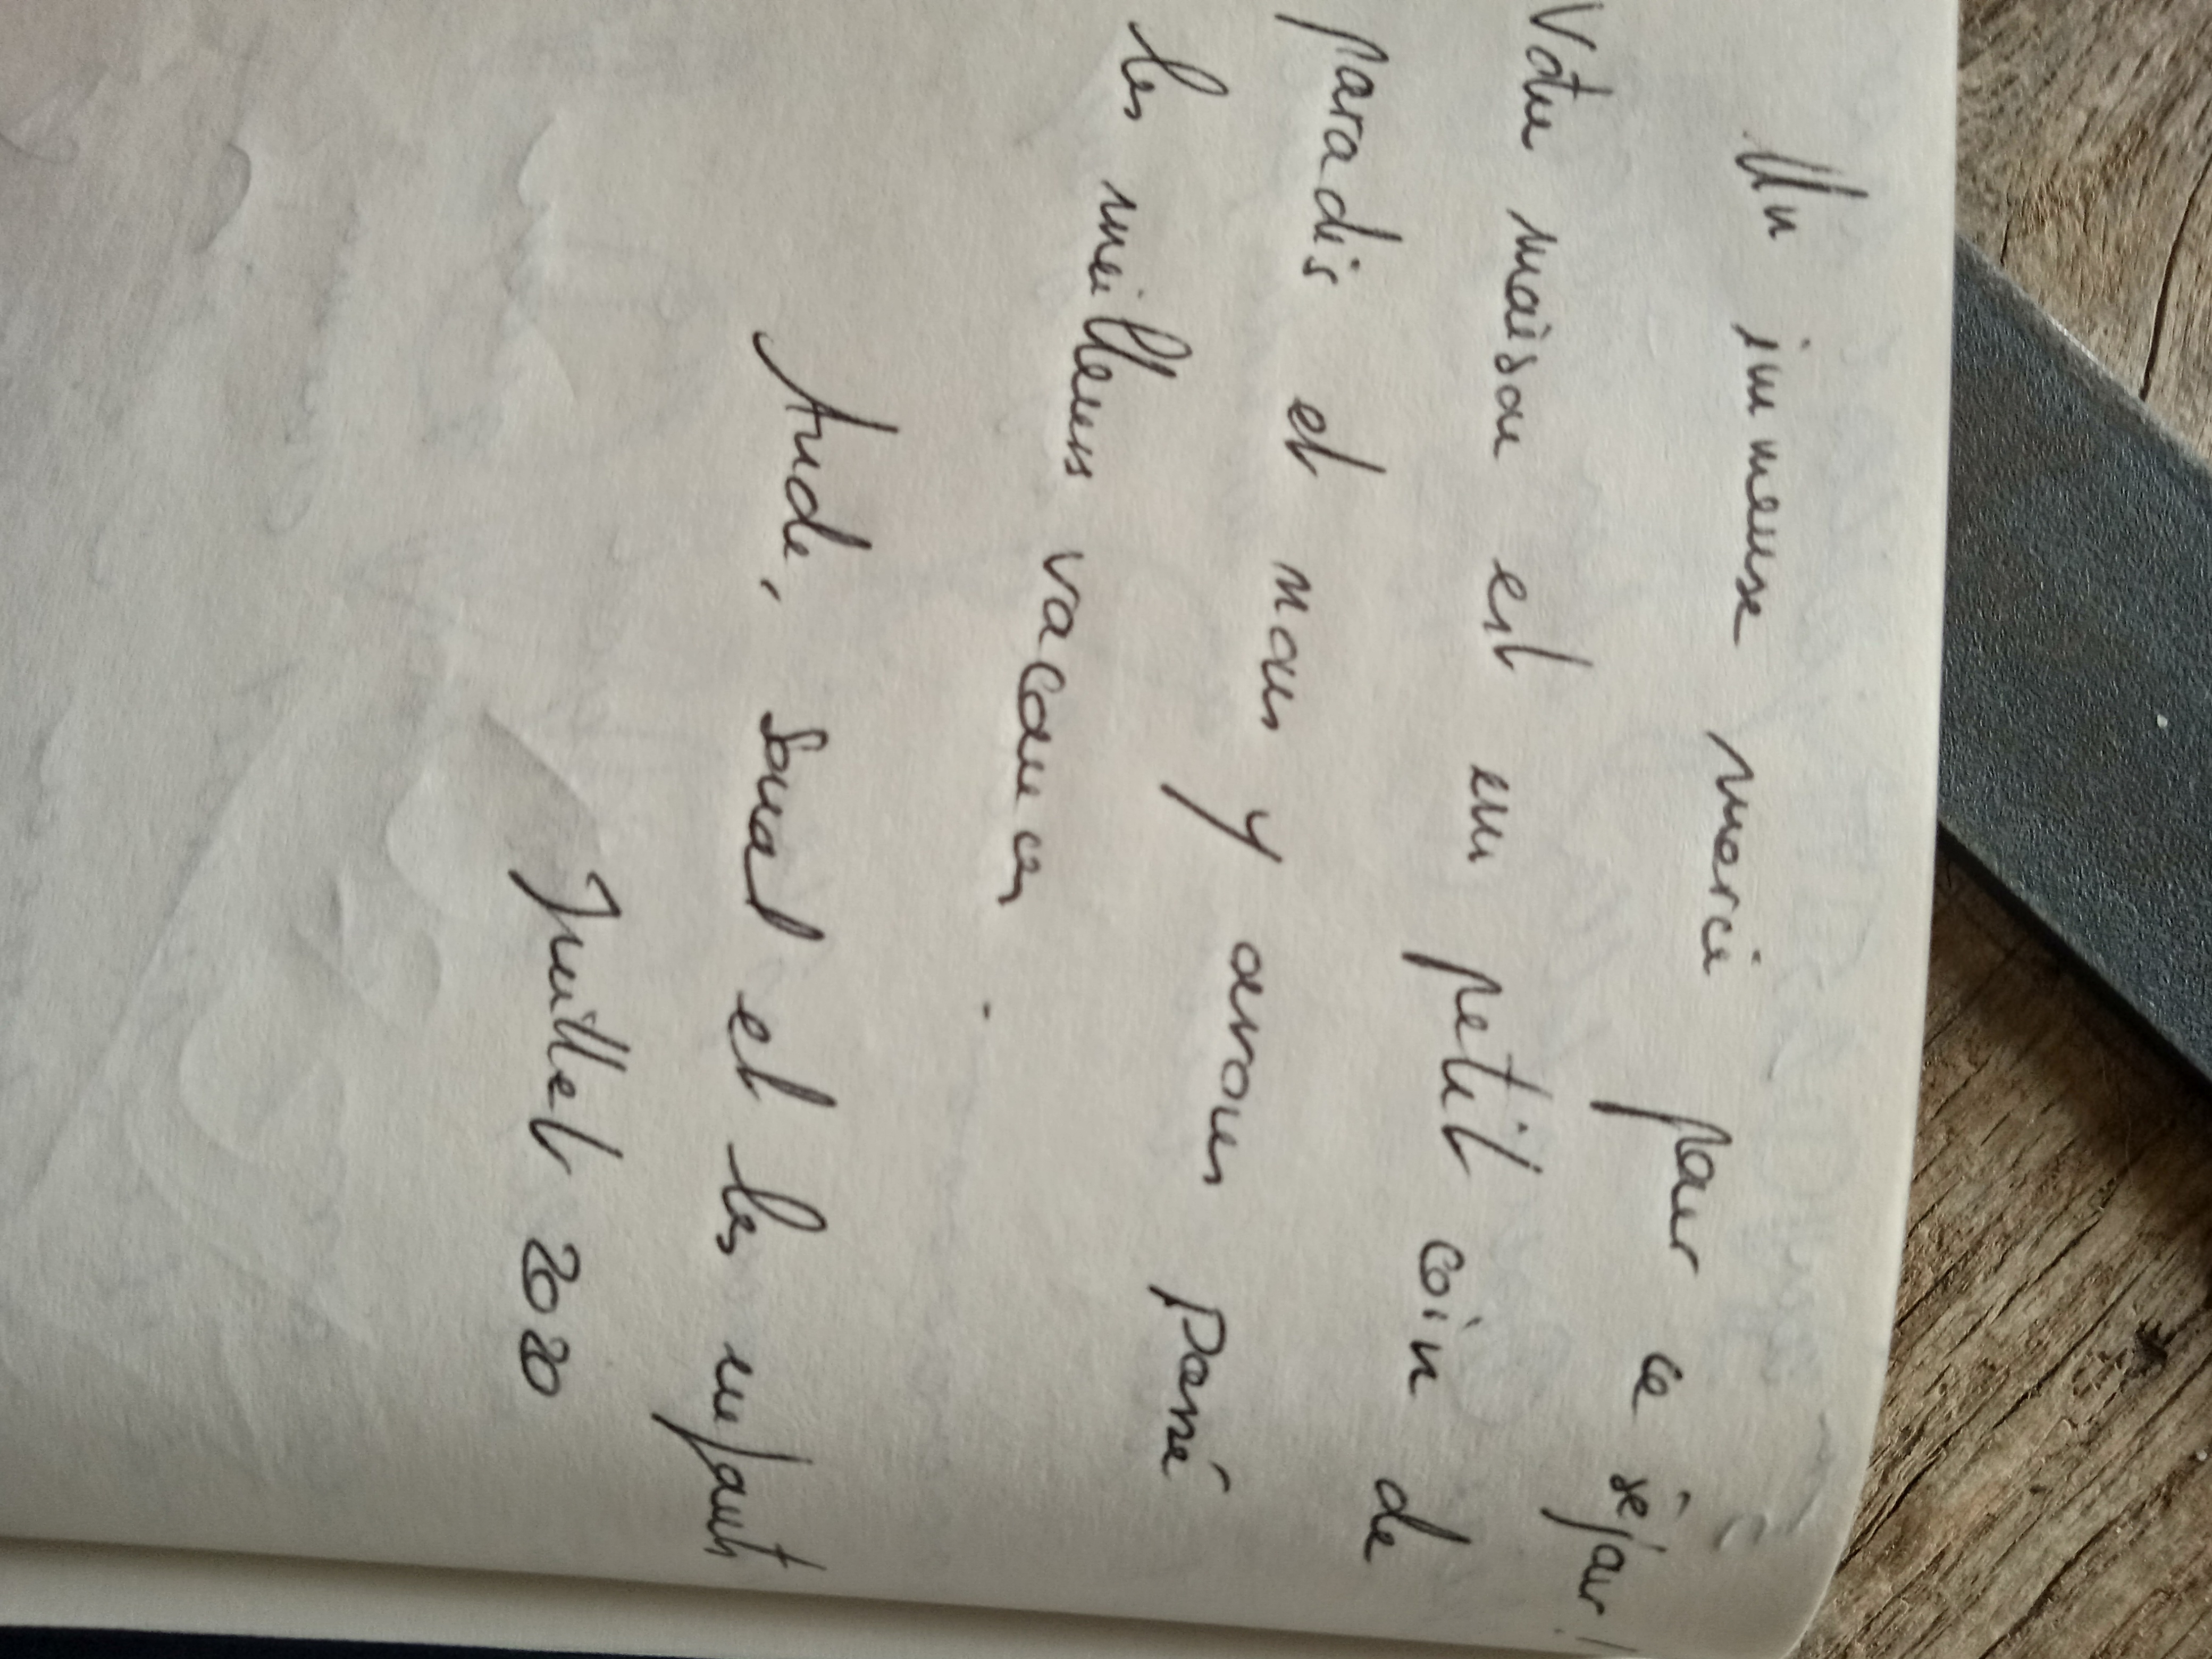 Un immense merci pour ce séjour !
Votre maison est un petit coin de
paradis et nous y avons passé
les meilleures vacances.
Aude, et les enfants
Juillet 2020